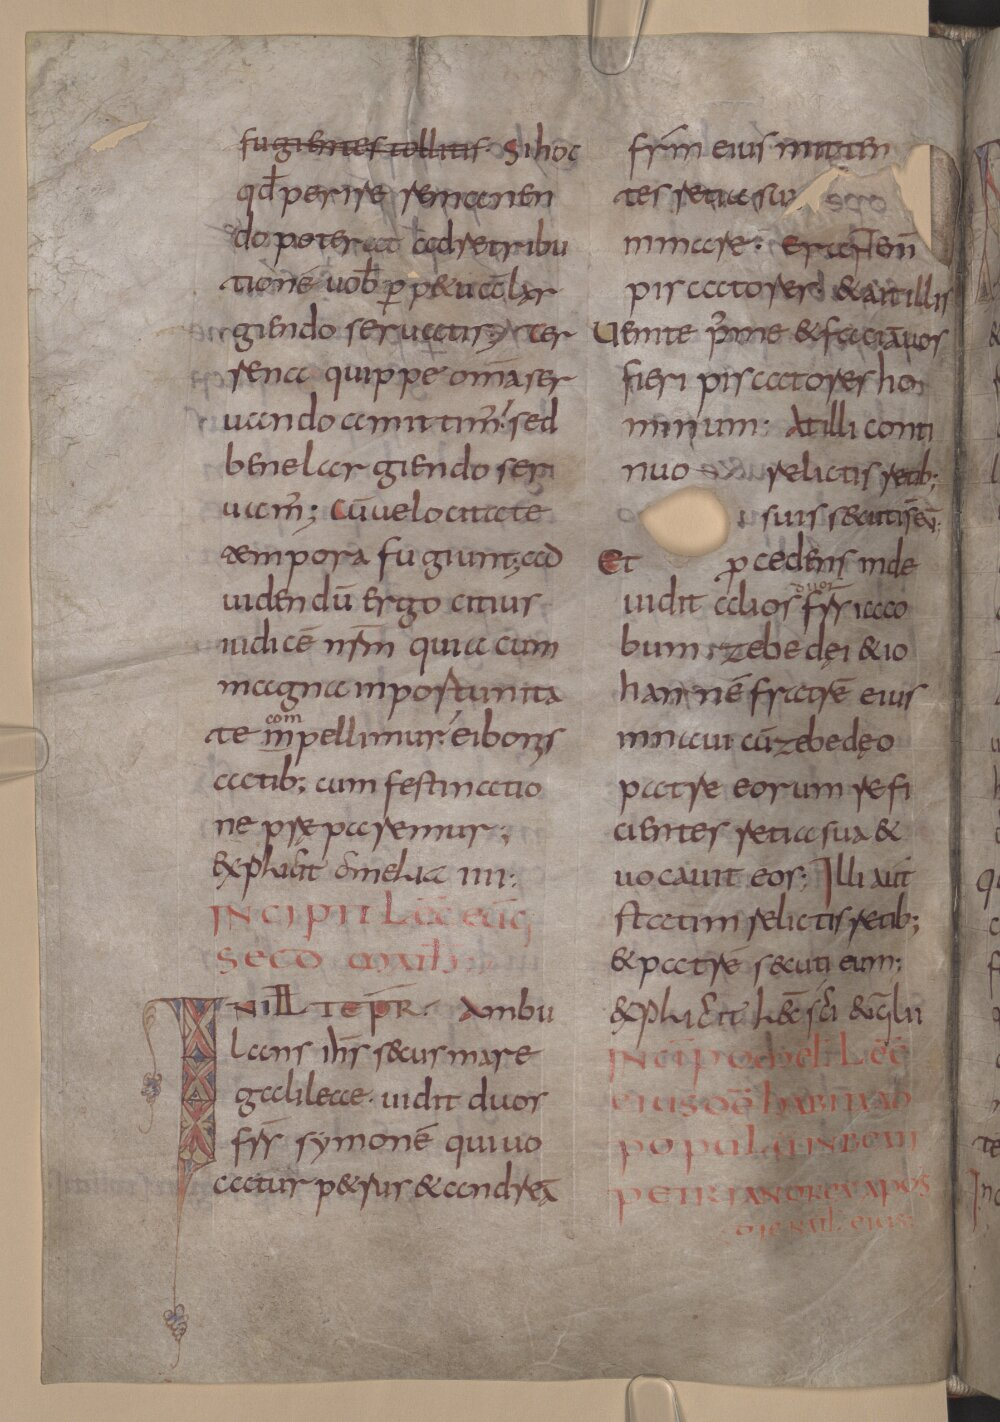 fugientes tollitis Si hoc
qđ perire remanen
do poterat ad retribu
tionē uob̄ ꝑpetua lar
giendo seruatis; ter
rena quippe om̄a ser
uando amittim̄; sed
bene largiendo ser
uam̄; Cū uelocitate
tempora fugiunt; ad
uidendū ergo citius
iudicē nr̄m quia cum
magna inportunita
te com
inpellimur. ei bonis
actib; cum festinatio
ne preparemur;
explicit omelia IIII;
INCIPIT LEC̄
SECD̄
IN ILL TEPR. Ambu
lans ih̄s secus mare
galileae. uidit duos
fr̄s symonē qui uo
catur petrus & andreā
fr̄m eius mitten
tes retia su
in mare. erant eni
piscatores & ait illis
Uenite p̄ me & faciā uos
fieri piscatores ho
minum. At illi conti
nuo relictis retib;
suis secuti s̄ eū;
Et ꝓcedens inde
duos
uidit alios fr̄s iaco
bum zebedęi & io
hannē fratrē eius
in naui cū zebedęo
patre eorum refi
cientes retia sua &
uocauit eos; Illi aūt
statim relictis retib;
& patrē secuti eum;
explicit lec̄ sc̄i euḡlii
INCIP OMEL LEC̄
EIUS DĒ HABITA AD
POPULŪ IN BEATI
PETRI ANDREE APOS